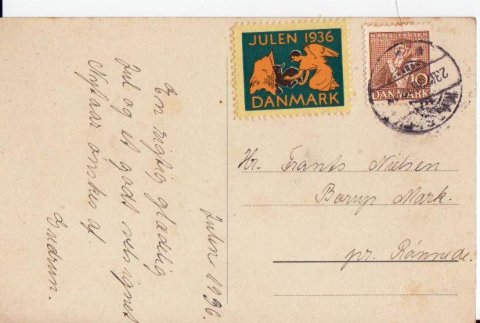 JULEN 1936
DANMARK
TASSEN
10
DANMARK
En rigtig glædelig
Jul og et godt velsignet
Nytaar ønskes af
Gudrun.
Julen 1936.
Hr. Frants Nielsen
Borup Mark.
pr. Rönnede.